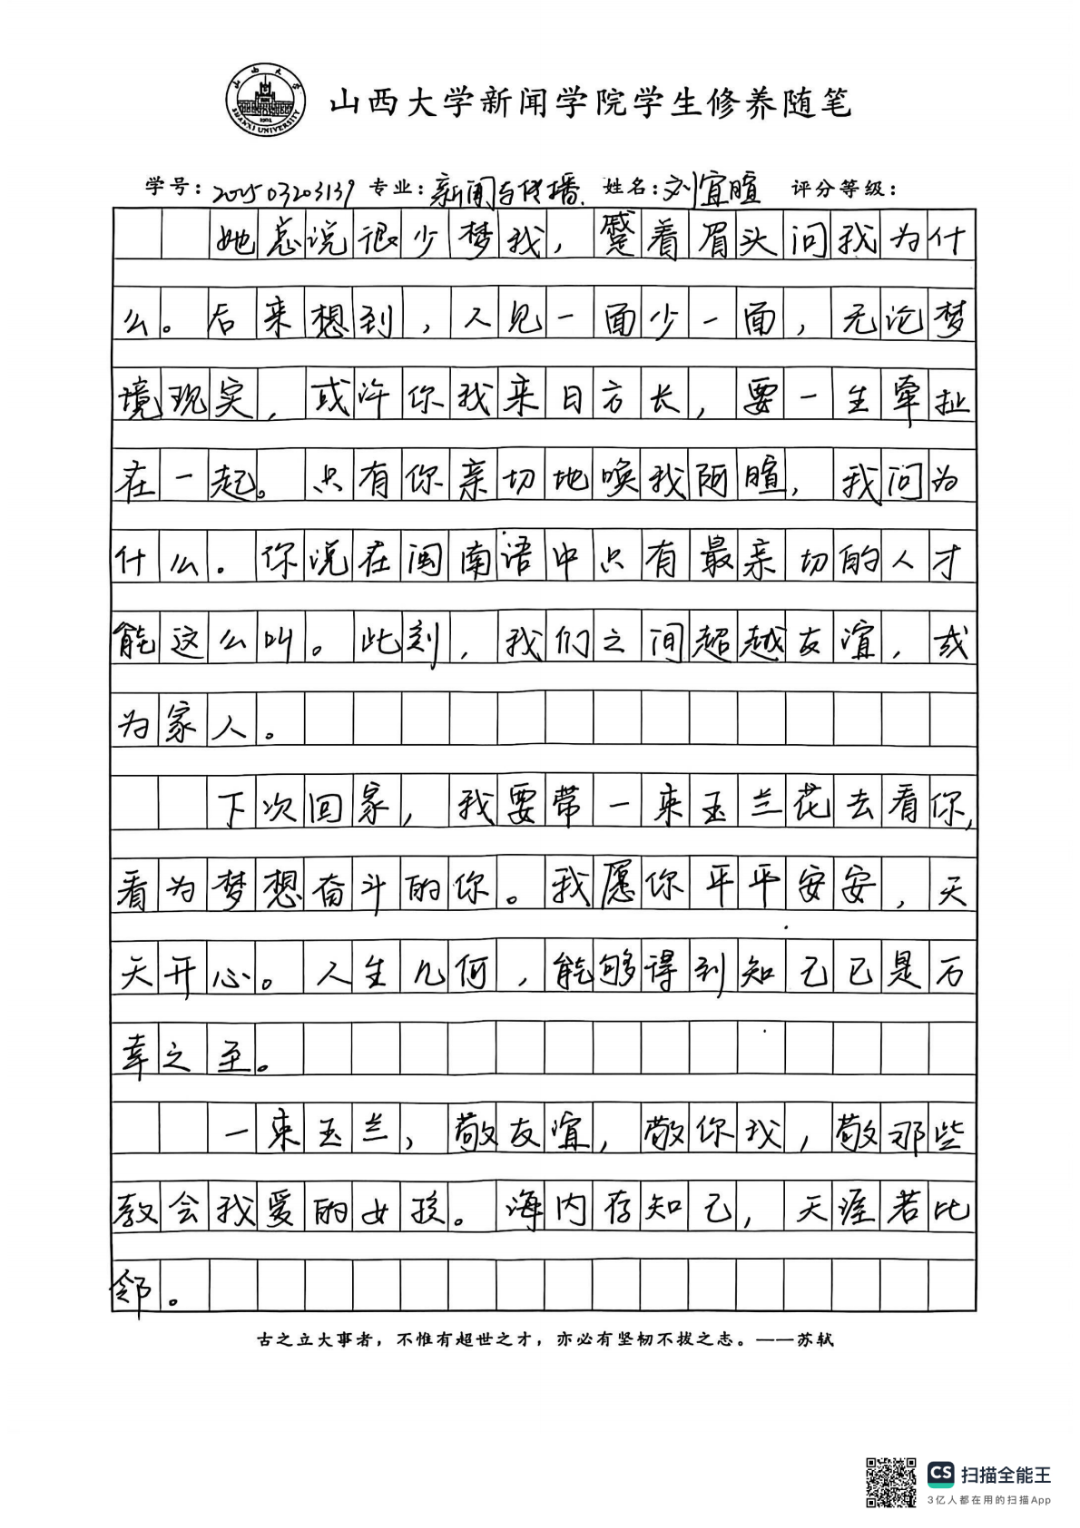 山西大学
SHANXI UNIVERSITY
1902
山西大学新闻学院学生修养随笔
学号：202503203139 专业：新闻与传播 姓名：刘宜暄 评分等级：
她总说很少梦我，蹙着眉头问我为什
么。后来想到，人见一面少一面，无论梦
境现实，或许你我来日方长，要一生牵扯
在一起。只有你亲切地唤我阿暄，我问为
什么．你说在闽南语中只有最亲切的人才
能这么叫。此刻，我们之间超越友谊，或
为家人。
下次回家，我要带一束玉兰花去看你，
看为梦想奋斗的你。我愿你平平安安，天
天开心。人生几何，能够得到知己已是万
幸之至。
一束玉兰，敬友谊，敬你我，敬那些
教会我爱的女孩。海内存知己，天涯若比
邻。
古之立大事者，不惟有超世之才，亦必有坚韧不拔之志。——苏轼
CS 扫描全能王
3亿人都在用的扫描App